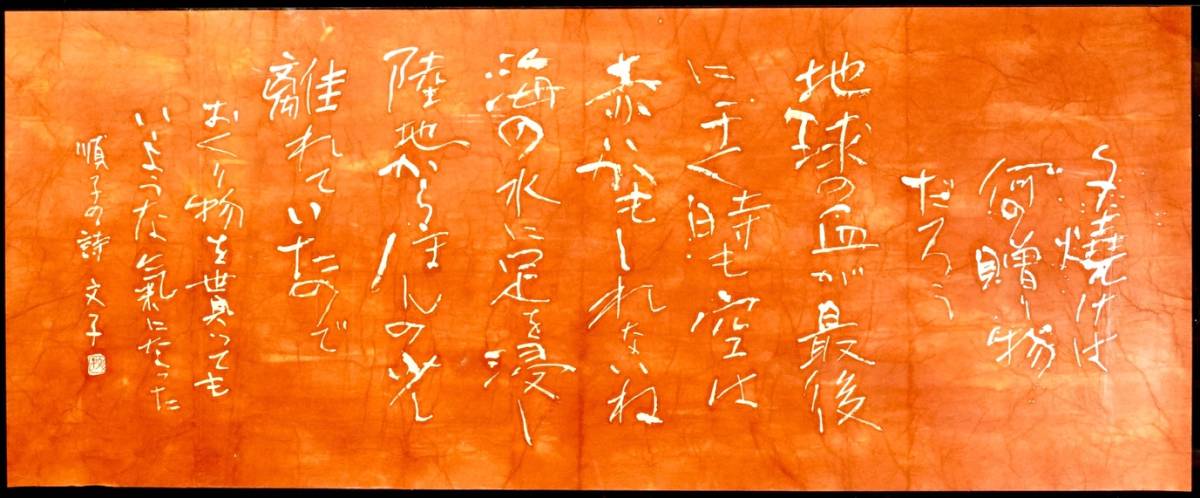 夕燒けは
何の贈り物
だろう
地球の血が最後
に干く時も空は
赤かもしれないね
海の水に足を浸し
陸地からほんの少し
離れていたので
おくり物を貰っても
いいような氣になった
順子の詩 文子